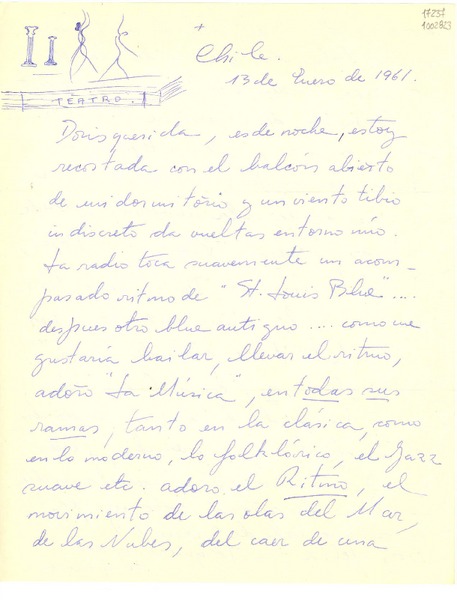 17237
1002823
+
Chile.
13 de Enero de 1961.
TEATRO.
Doris querida, es de noche, estoy
recostada con el balcón abierto
de mi dormitorio y un viento tibio
indiscreto da vueltas entorno mío.
La radio toca suavemente un acom-
pasado ritmo de "St. Louis Blue"....
despues otro blue antiguo.... como me
gustaría bailar, llevar el ritmo,
adoro "La Música", en todas sus
ramas, tanto en la clásica, como
en lo moderno, lo folklórico, el Jazz
suave etc. adoro el Ritmo, el
movimiento de las olas del Mar,
de las Nubes, del caer de una